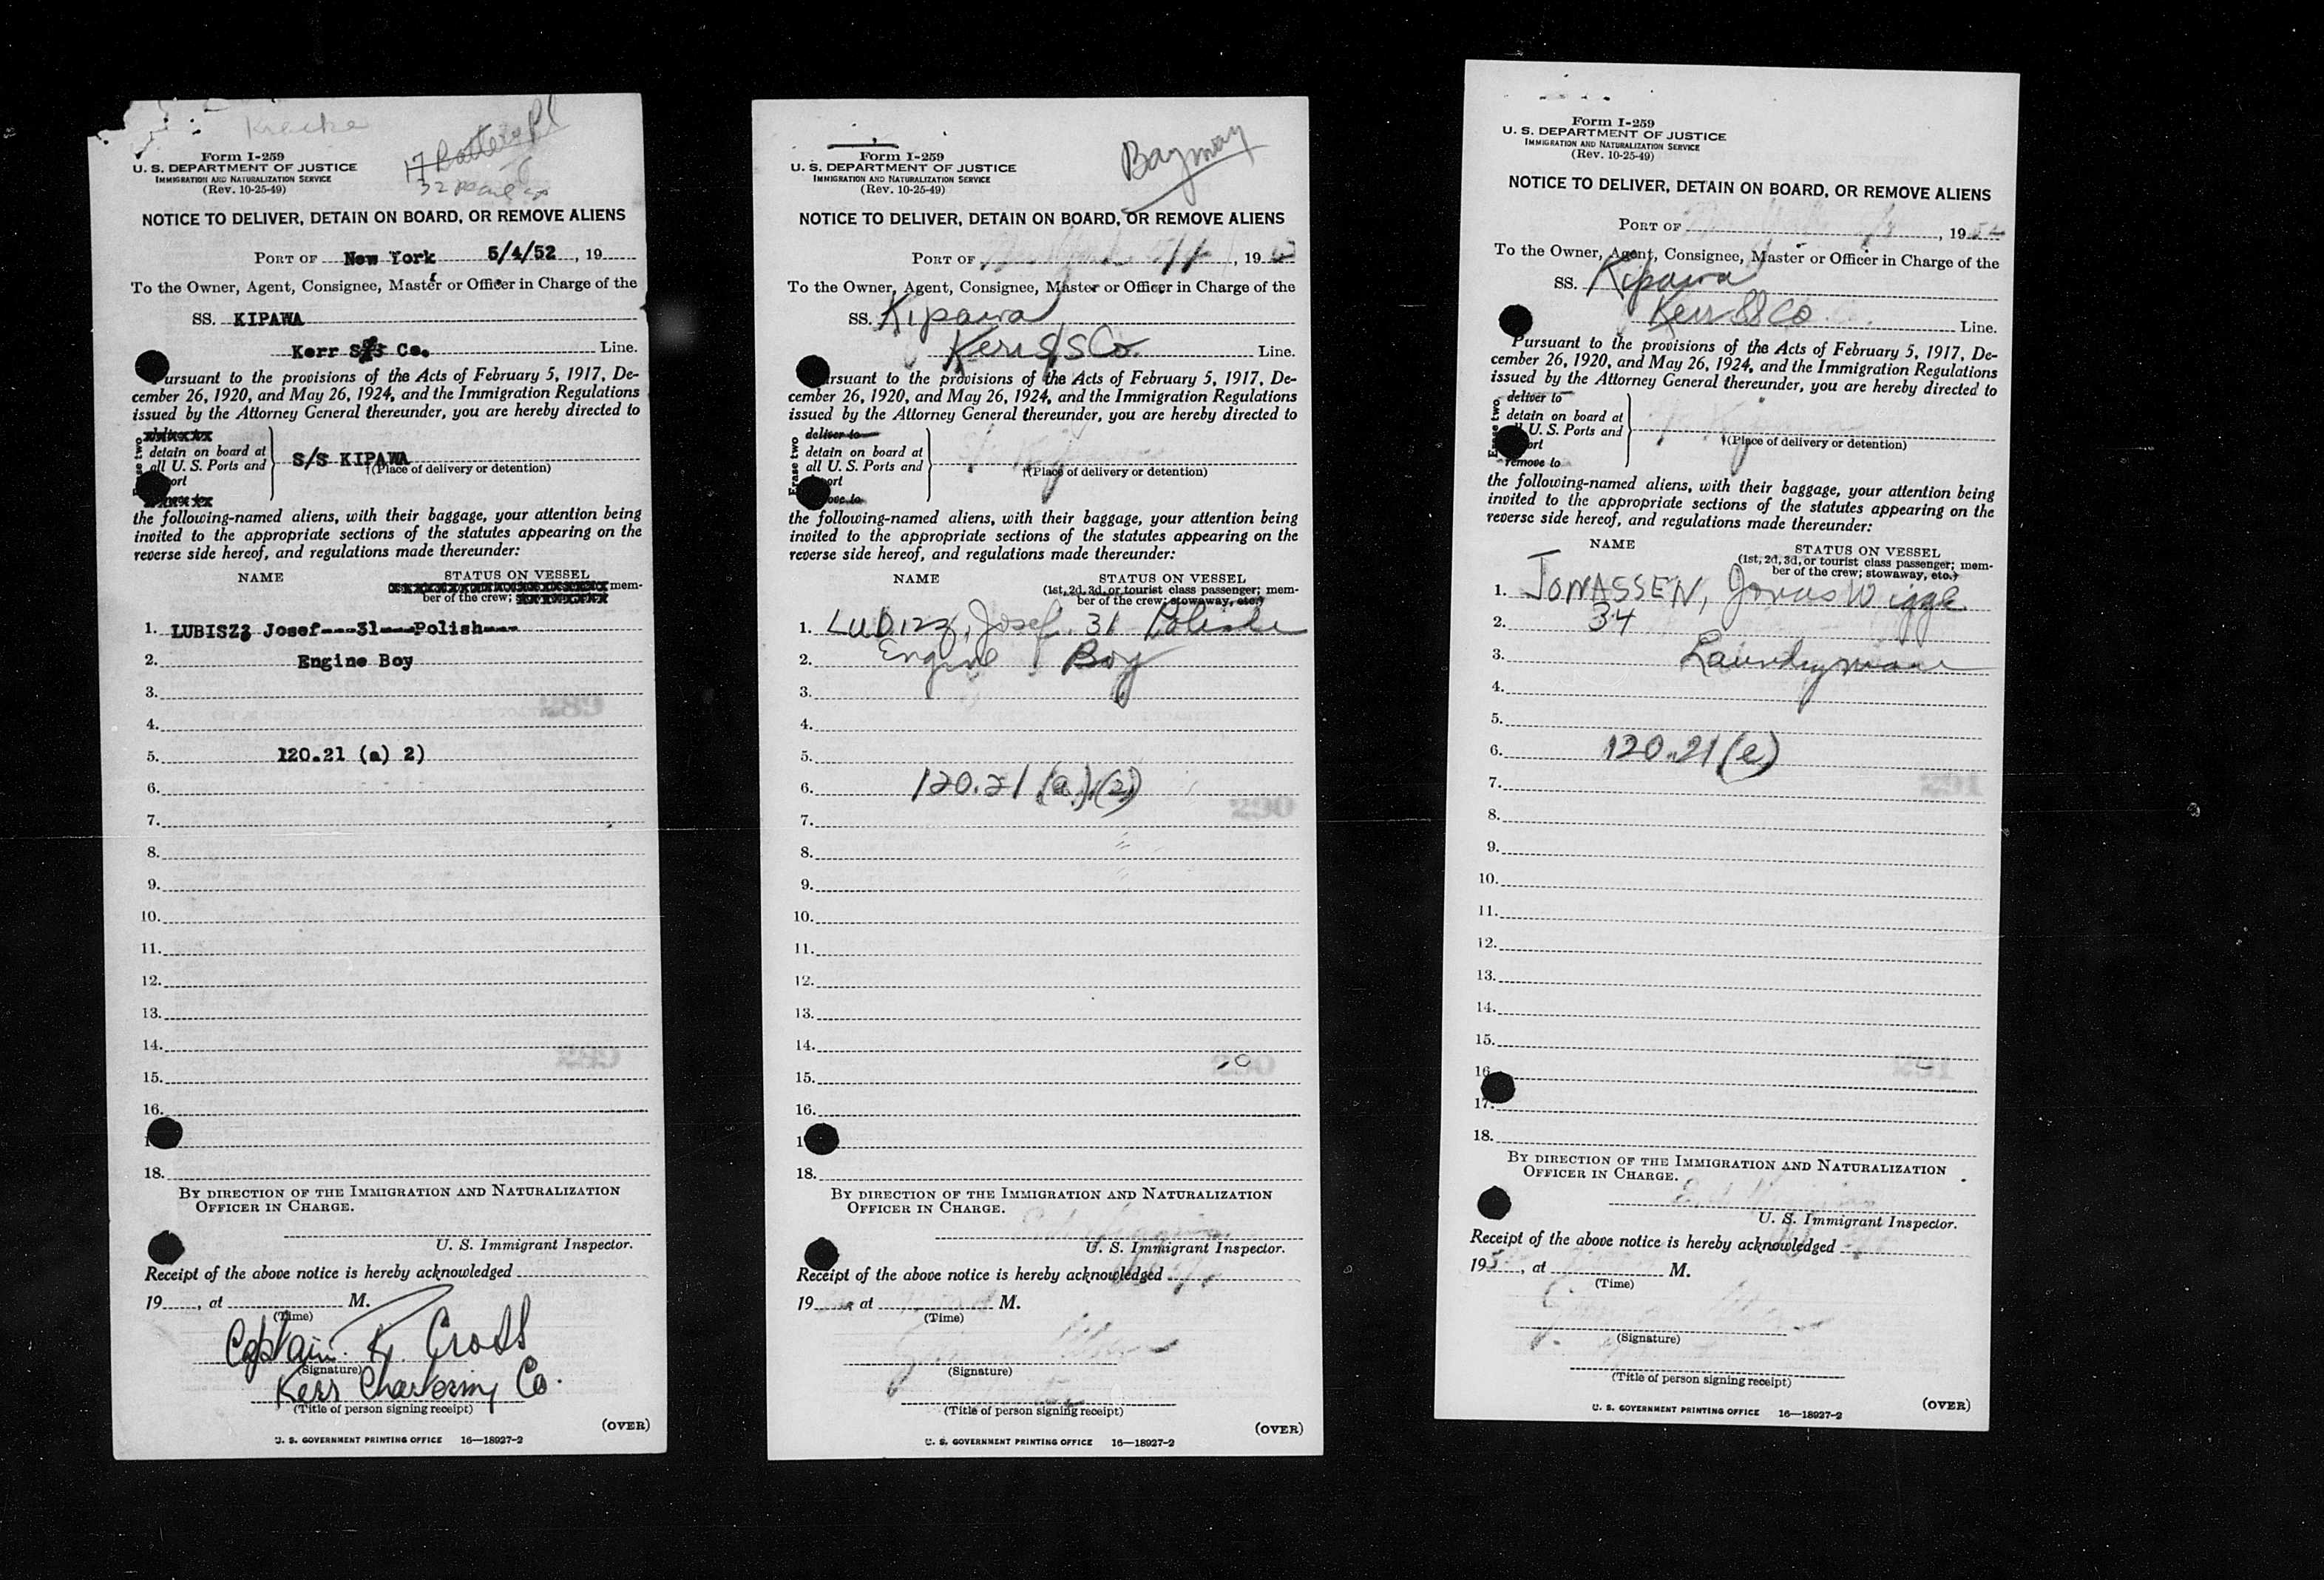 Form I-259
U. S. DEPARTMENT OF JUSTICE
IMMIGRATION AND NATURALIZATION SERVICE
(Rev. 10-25-49)
17 Battery Pl
NOTICE TO DELIVER, DETAIN ON BOARD, OR REMOVE ALIENS
PORT OF New York 5/4/52, 19
To the Owner, Agent, Consignee, Master or Officer in Charge of the
SS. KIPAWA
Kerr Co. Line.
Pursuant to the provisions of the Acts of February 5, 1917, De-
cember 26, 1920, and May 26, 1924, and the Immigration Regulations
issued by the Attorney General thereunder, you are hereby directed to
detain on board at
all U. S. Ports and
S/S KIPAWA
(Place of delivery or detention)
the following-named aliens, with their baggage, your attention being
invited to the appropriate sections of the statutes appearing on the
reverse side hereof, and regulations made thereunder:
NAME STATUS ON VESSEL
mem-
ber of the crew;
1. LUBISZ Josef---31---Polish---
2. Engine Boy
3.
4.
5. 120.21 (a) 2)
6.
7.
8.
9.
10.
11.
12.
13.
14.
15.
16.
18.
BY DIRECTION OF THE IMMIGRATION AND NATURALIZATION
OFFICER IN CHARGE.
U. S. Immigrant Inspector.
Receipt of the above notice is hereby acknowledged
19, at M.
(Time)
Captain K. Cross
(Signature)
Kerr Chartering Co.
(Title of person signing receipt)
(OVER)
U. S. GOVERNMENT PRINTING OFFICE 16—18927-2
Form I-259
U. S. DEPARTMENT OF JUSTICE
IMMIGRATION AND NATURALIZATION SERVICE
(Rev. 10-25-49)
Bayway
NOTICE TO DELIVER, DETAIN ON BOARD, OR REMOVE ALIENS
PORT OF , 19
To the Owner, Agent, Consignee, Master or Officer in Charge of the
SS. Kipawa
Kerr S/S Co. Line.
rsuant to the provisions of the Acts of February 5, 1917, De-
cember 26, 1920, and May 26, 1924, and the Immigration Regulations
issued by the Attorney General thereunder, you are hereby directed to
Erase two
deliver to
detain on board at
all U. S. Ports and
ort
ove to
(Place of delivery or detention)
the following-named aliens, with their baggage, your attention being
invited to the appropriate sections of the statutes appearing on the
reverse side hereof, and regulations made thereunder:
NAME STATUS ON VESSEL
(1st, 2d, 3d, or tourist class passenger; mem-
ber of the crew; stowaway, etc.)
1. Josef 31 Polish
2. Engine Boy
3.
4.
5.
6. 120.21 (a) (2)
7.
8.
9.
10.
11.
12.
13.
14.
15.
16.
18.
BY DIRECTION OF THE IMMIGRATION AND NATURALIZATION
OFFICER IN CHARGE.
U. S. Immigrant Inspector.
Receipt of the above notice is hereby acknowledged
19, at M.
(Time)
(Signature)
(Title of person signing receipt)
(OVER)
U. S. GOVERNMENT PRINTING OFFICE 16—18927-2
Form I-259
U. S. DEPARTMENT OF JUSTICE
IMMIGRATION AND NATURALIZATION SERVICE
(Rev. 10-25-49)
NOTICE TO DELIVER, DETAIN ON BOARD, OR REMOVE ALIENS
PORT OF , 1952
To the Owner, Agent, Consignee, Master or Officer in Charge of the
SS. Kipawa
Kerr SS Co Line.
Pursuant to the provisions of the Acts of February 5, 1917, De-
cember 26, 1920, and May 26, 1924, and the Immigration Regulations
issued by the Attorney General thereunder, you are hereby directed to
Erase two
deliver to
detain on board at
U. S. Ports and
ort
remove to
(Place of delivery or detention)
the following-named aliens, with their baggage, your attention being
invited to the appropriate sections of the statutes appearing on the
reverse side hereof, and regulations made thereunder:
NAME STATUS ON VESSEL
(1st, 2d, 3d, or tourist class passenger; mem-
ber of the crew; stowaway, etc.)
1. JONASSEN, Jonas
2. 34
3. Laundryman
4.
5.
6. 120.21 (e)
7.
8.
9.
10.
11.
12.
13.
14.
15.
16
17.
18.
BY DIRECTION OF THE IMMIGRATION AND NATURALIZATION
OFFICER IN CHARGE.
U. S. Immigrant Inspector.
Receipt of the above notice is hereby acknowledged
195, at M.
(Time)
(Signature)
(Title of person signing receipt)
(OVER)
U. S. GOVERNMENT PRINTING OFFICE 16—18927-2